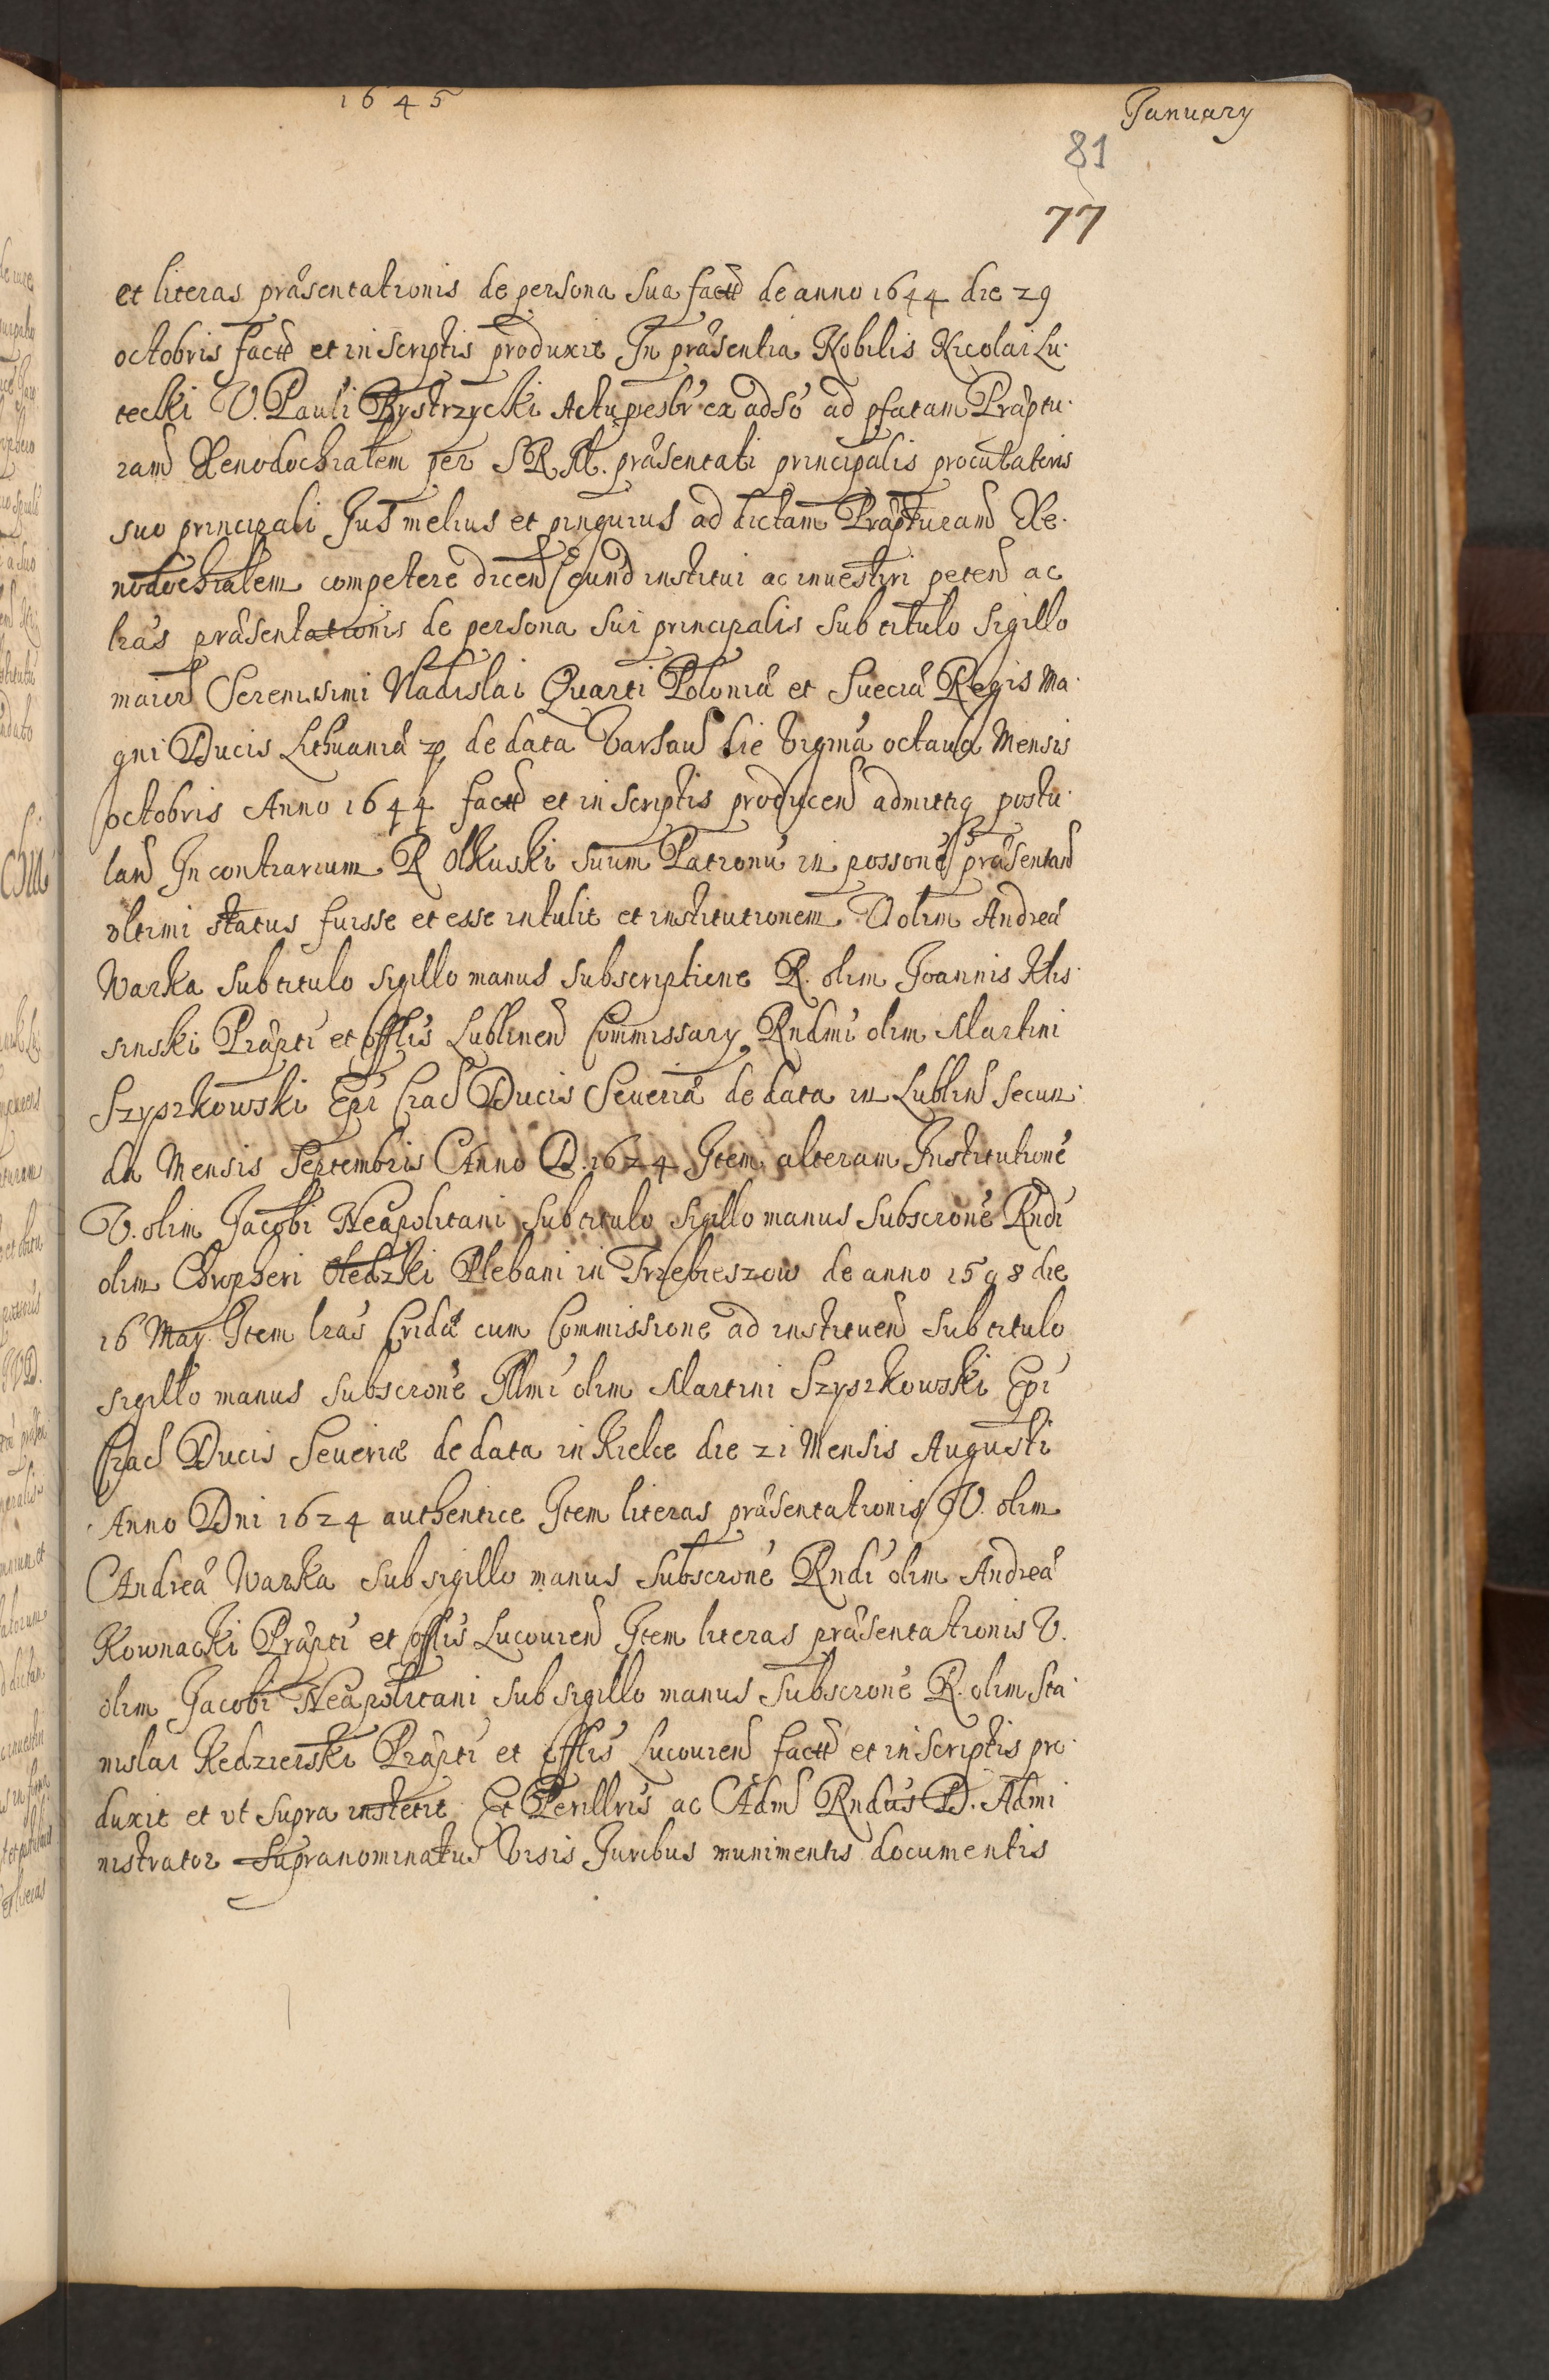 1645
January
81
77
et literas præsentationis de persona sua factt de anno 1644 die 29
octobris factt et in scriptis produxit In præsentia Nobilis Nicolai Lu-
tecki V. Pauli Bystrzycki Actu presbr ad pfatam Præptu-
ram Xenodochialem per SRM. præsentati principalis procutatoris
suo principali Jus melius et pinguius ad dictam Præpturam Xe-
nodochialem competere dicen eund institui ac inuestiri peten ac
lras præsentationis de persona sui principalis sub titulo sigillo
maiori Serenissimi Vladislai Quarti Poloniæ et Sueciæ Regis Ma-
gni Ducis Lithuaniæ de data Varsau die vigma octaua Mensis
octobris Anno 1644 factt et in scriptis producen admittiq postu-
lan In contrarium R Olkuski suum Patronu in possone præsentand
vltimi status fuisse et esse intulit et institutionem V olim Andreæ
Warka sub titulo sigillo manus subscriptione R. olim Joannis Klis-
sinski Præpti et offlis Lublinen Commissary Rndmi olim Martini
Szyszkowski Epi Crac Ducis Seueriæ de data in Lublin secun-
da Mensis Septembris Anno D. 1624 Item alteram Institutione
V. olim Jacobi Neapolitani sub titulo sigillo manus subscrone Rndi
olim Chropheri Oledzki Plebani in Trzebieszow de anno 1598 die
16 May. Item lras Cridæ cum Commissione ad instituen sub titulo
sigillo manus subscrone Illmi olim Martini Szyszkowski Epi
Crac Ducis Seueriæ de data in Kielce die 21 Mensis Augusti
Anno Dni 1624 authentice Item literas præsentationis V. olim
Andreæ Warka sub sigillo manus subscrone Rndi olim Andreæ
Kownacki Præpti et offlis Lucouien Item literas præsentationis V.
olim Jacobi Neapolitani sub sigillo manus subscrone R. olim Sta-
nislai Kedzierski Præpti et offlis Lucouien factt et in scriptis pro-
duxit et vt supra institit Et Perillris ac Adm Rndus D. Admi
nistrator supranominatus visis Juribus munimentis documentis